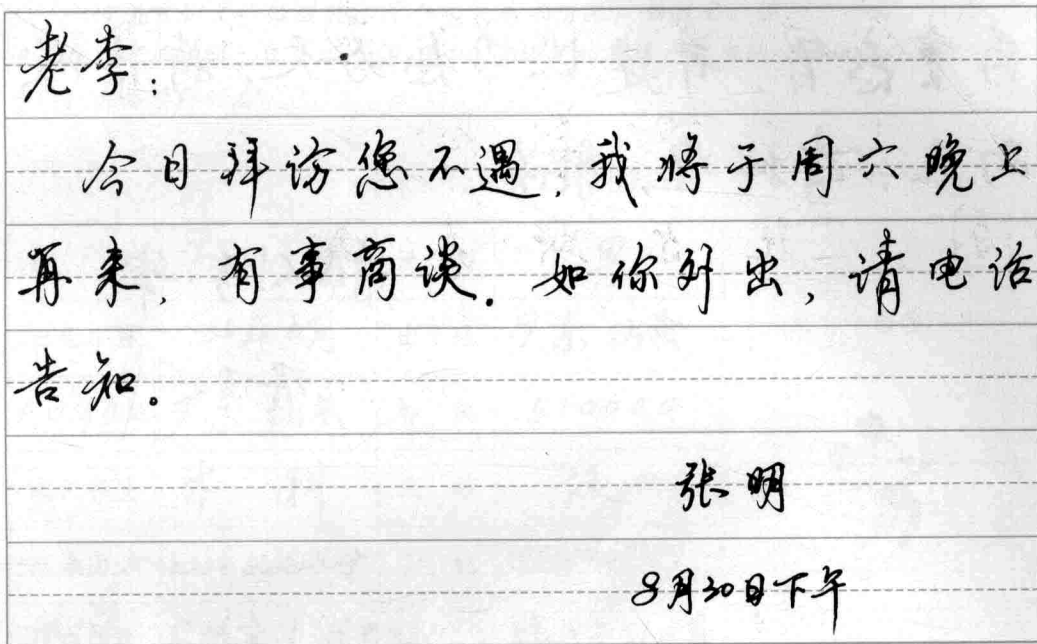 老李:
今日拜访您不遇,我将于周六晚上
再来,有事商谈.如你外出,请电话
告知。
张明
8月30日下午